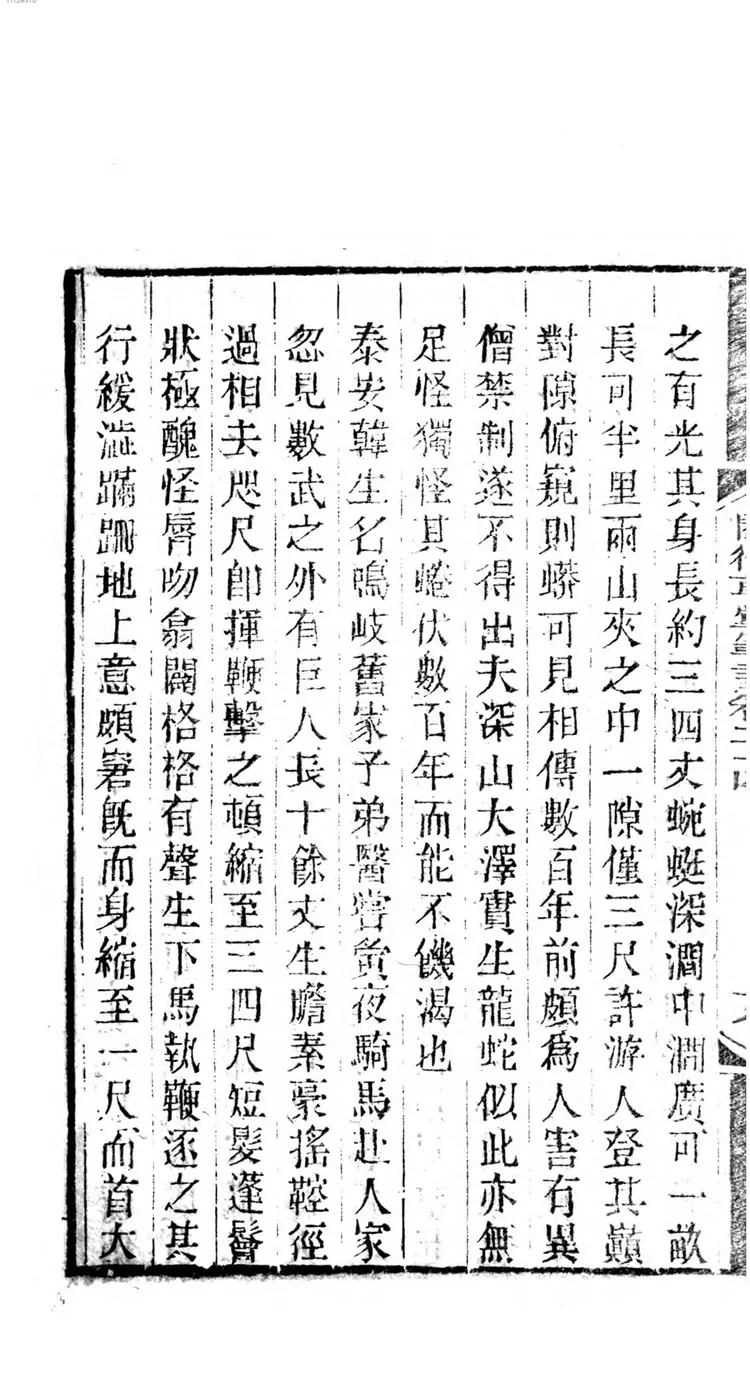 11129310
之有光其身長約三四丈蜿蜒深澗中澗廣可一畝
長可半里兩山夾之中一隙僅三尺許游人登其巔
對隙俯窺則蟒可見相傳數百年前頗爲人害有異
僧禁制遂不得出夫深山大澤實生龍蛇似此亦無
足怪獨怪其蜷伏數百年而能不饑渴也
泰安韓生名鳴岐舊家子弟醫嘗夤夜騎馬赴人家
忽見數武之外有巨人長十餘丈生膽素豪搖鞚徑
過相去咫尺卽揮鞭擊之頓縮至三四尺短髮蓬鬙
狀極醜怪脣吻翕闢格格有聲生下馬執鞭逐之其
行緩澁蹣跚地上意頗窘旣而身縮至一尺而首大